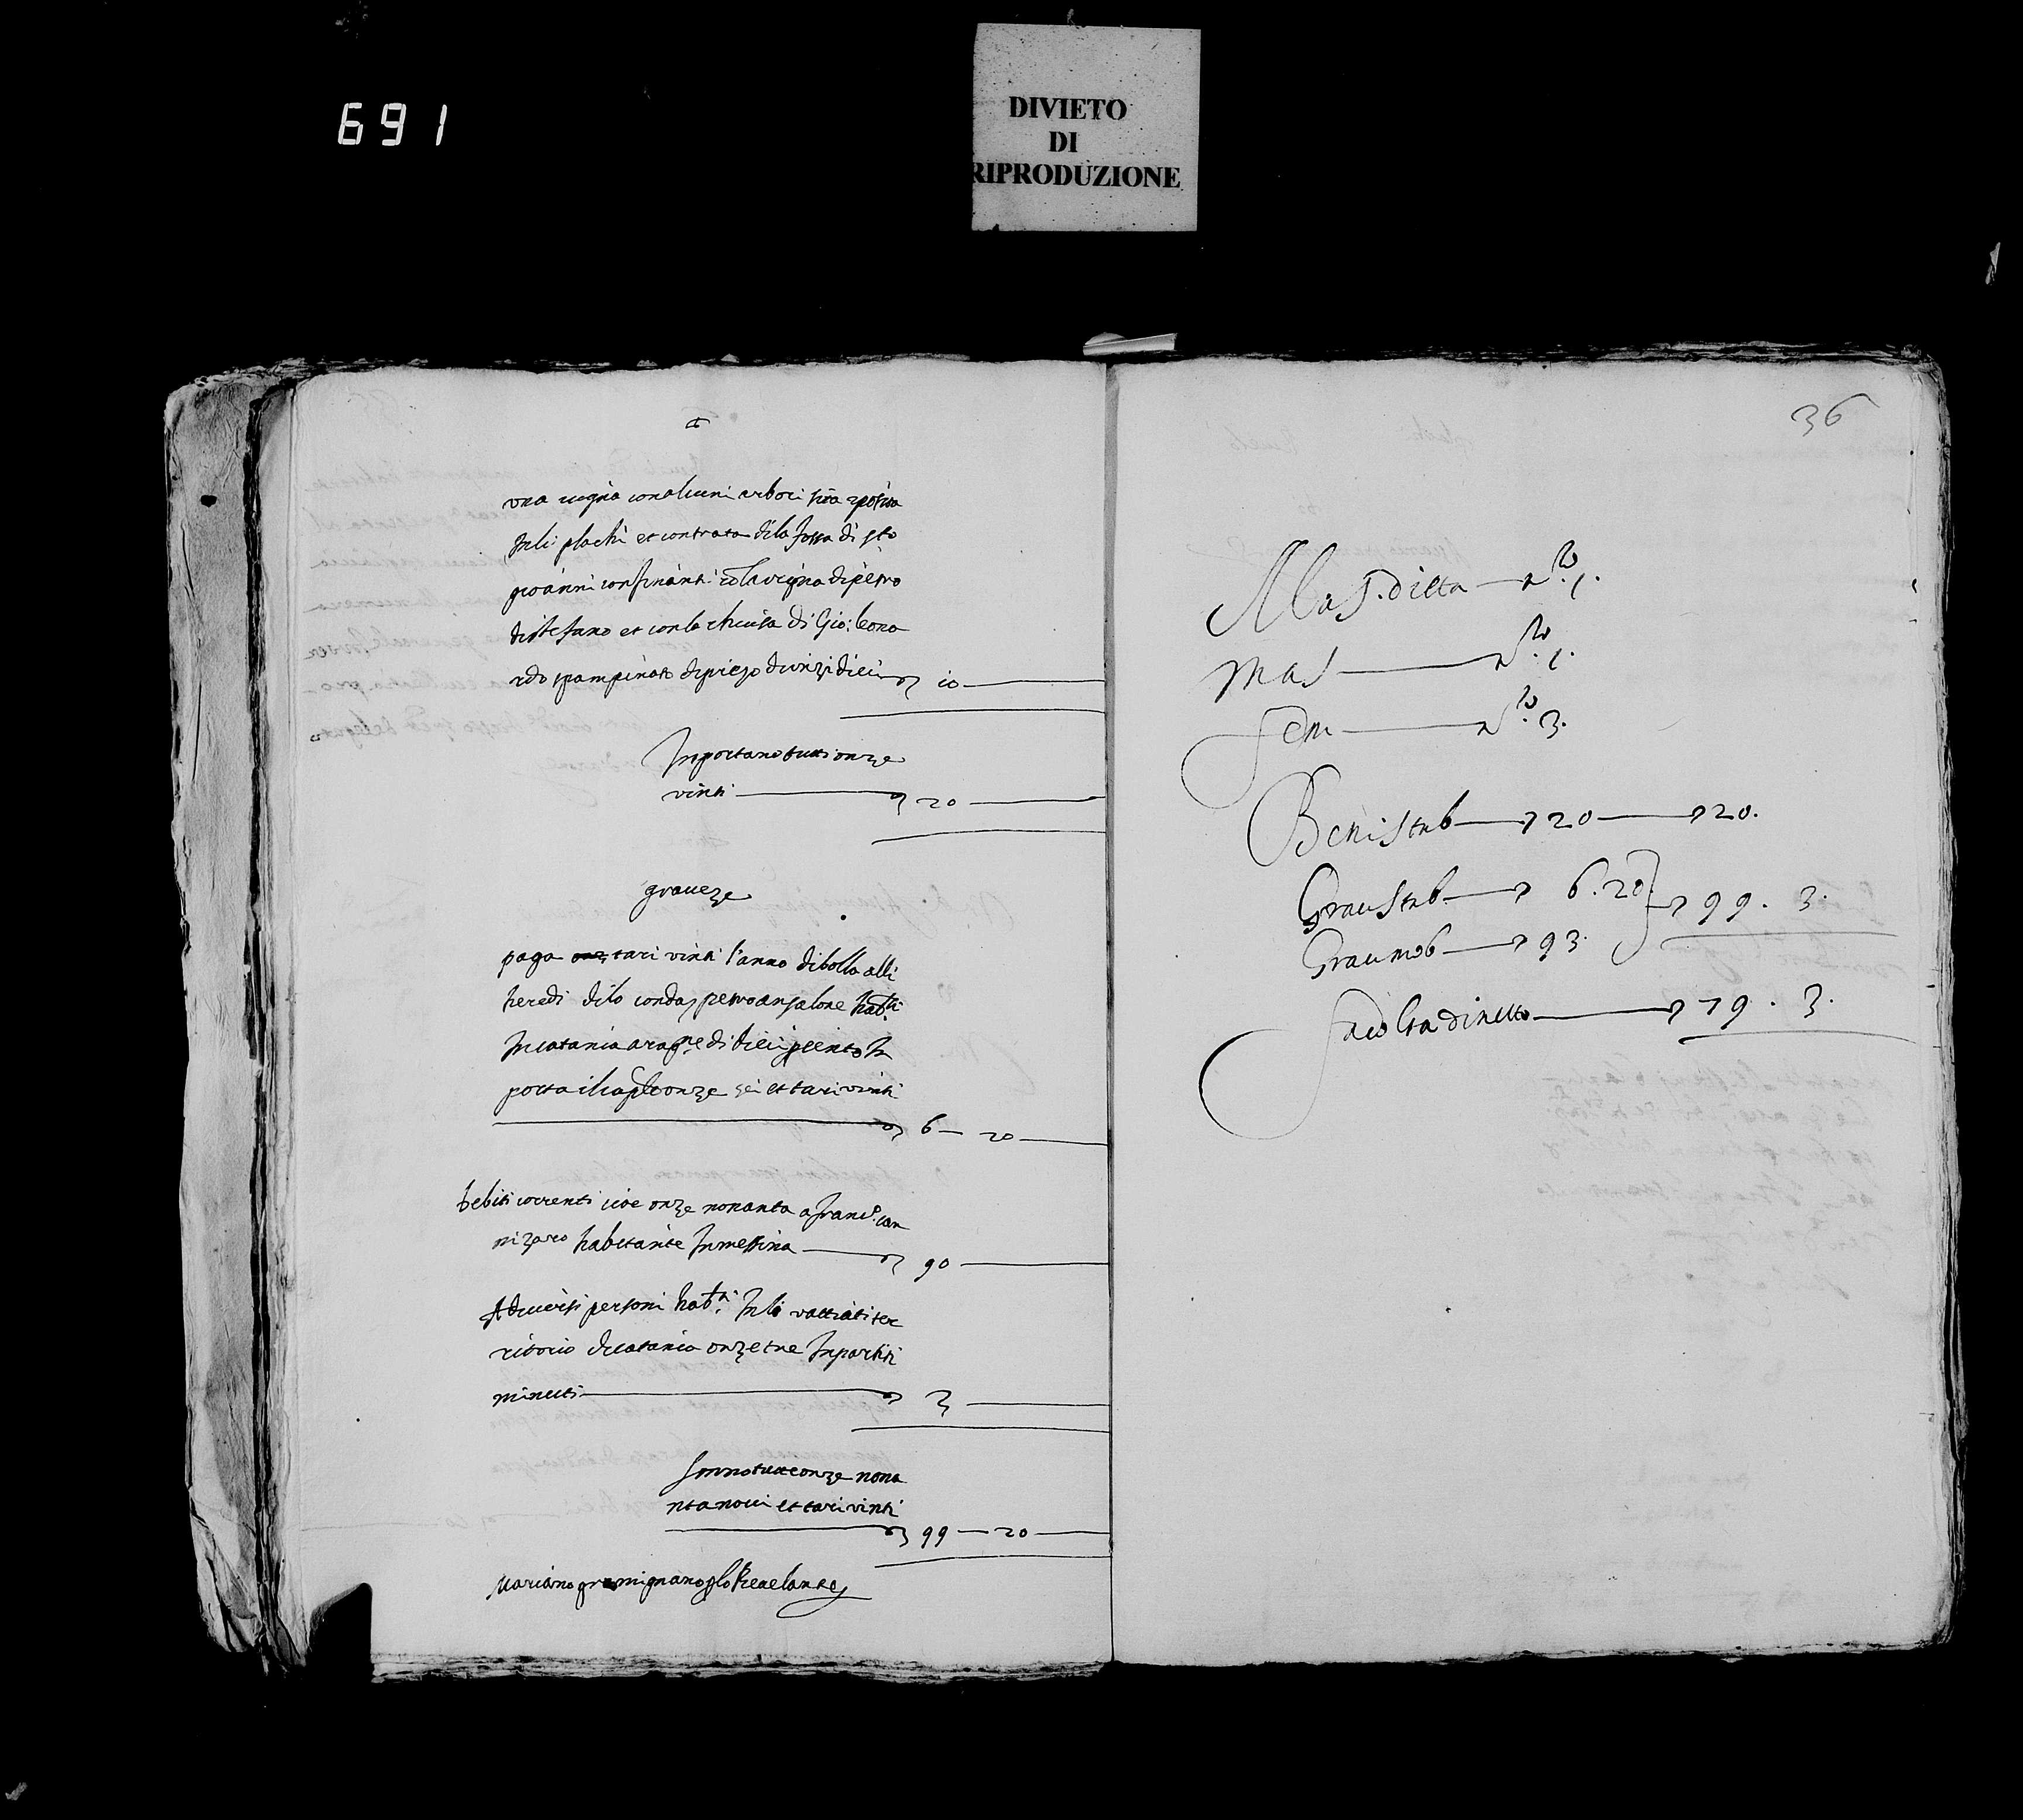 691
DIVIETO
DI
RIPRODUZIONE
una vigna con alcuni arbori sita et posita
In li plachi et contrata di la fossa di sto
gioanni confinanti co la vigna di petro
di stefano et con la chiusa di Gio: leona
rdo spampinato di prezo di onzi dieci 10
Importano tutti onze
vinti 20
graveze
paga tari vinti l'anno di bolla alli
heredi di lo petro ansalone habti
In catania a ragne di dieci per cento Im
porta il caple onze sei et tari vinti
6 - 20
Debiti correnti cioe onze nonanta a Franco can
nizaro habitante In messina 90
A diversi personi habti In li vattiati ter
ritorio di catania onze tre In partiti
minuti 3
Sonno tutte onze nona
nta novi et tari vinti
99 - 20
Mariano gremignano per lo Revelante
36
Mas. ditta No. 1.
Mas No. 1.
Fem No. 3.
Beni Stab 20 20.
Grav Stab 6.20 99. 3.
Grav mob 93.
Facolta di netto 79. 3.